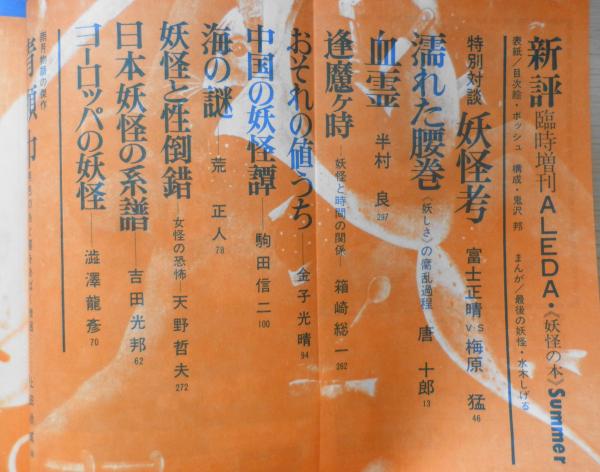 新評 臨時増刊 ALEDA・《妖怪の本》Summer
表紙/目次絵・ボッシュ 構成・鬼沢 邦 まんが/最後の妖怪・水木しげる
特別対談 妖怪考 富士正晴vs梅原 猛 46
濡れた腰巻 〈妖しさ〉の腐乱過程 唐 十郎 13
血霊 半村 良 297
逢魔ヶ時 ―妖怪と時間の関係― 箱崎総一 262
おそれの値うち―金子光晴 94
中国の妖怪譚―駒田信二 100
海の謎―荒 正人 78
妖怪と性倒錯―女怪の恐怖―天野哲夫 272
日本妖怪の系譜―吉田光邦 62
ヨーロッパの妖怪―澁澤龍彥 70
雨月物語の傑作